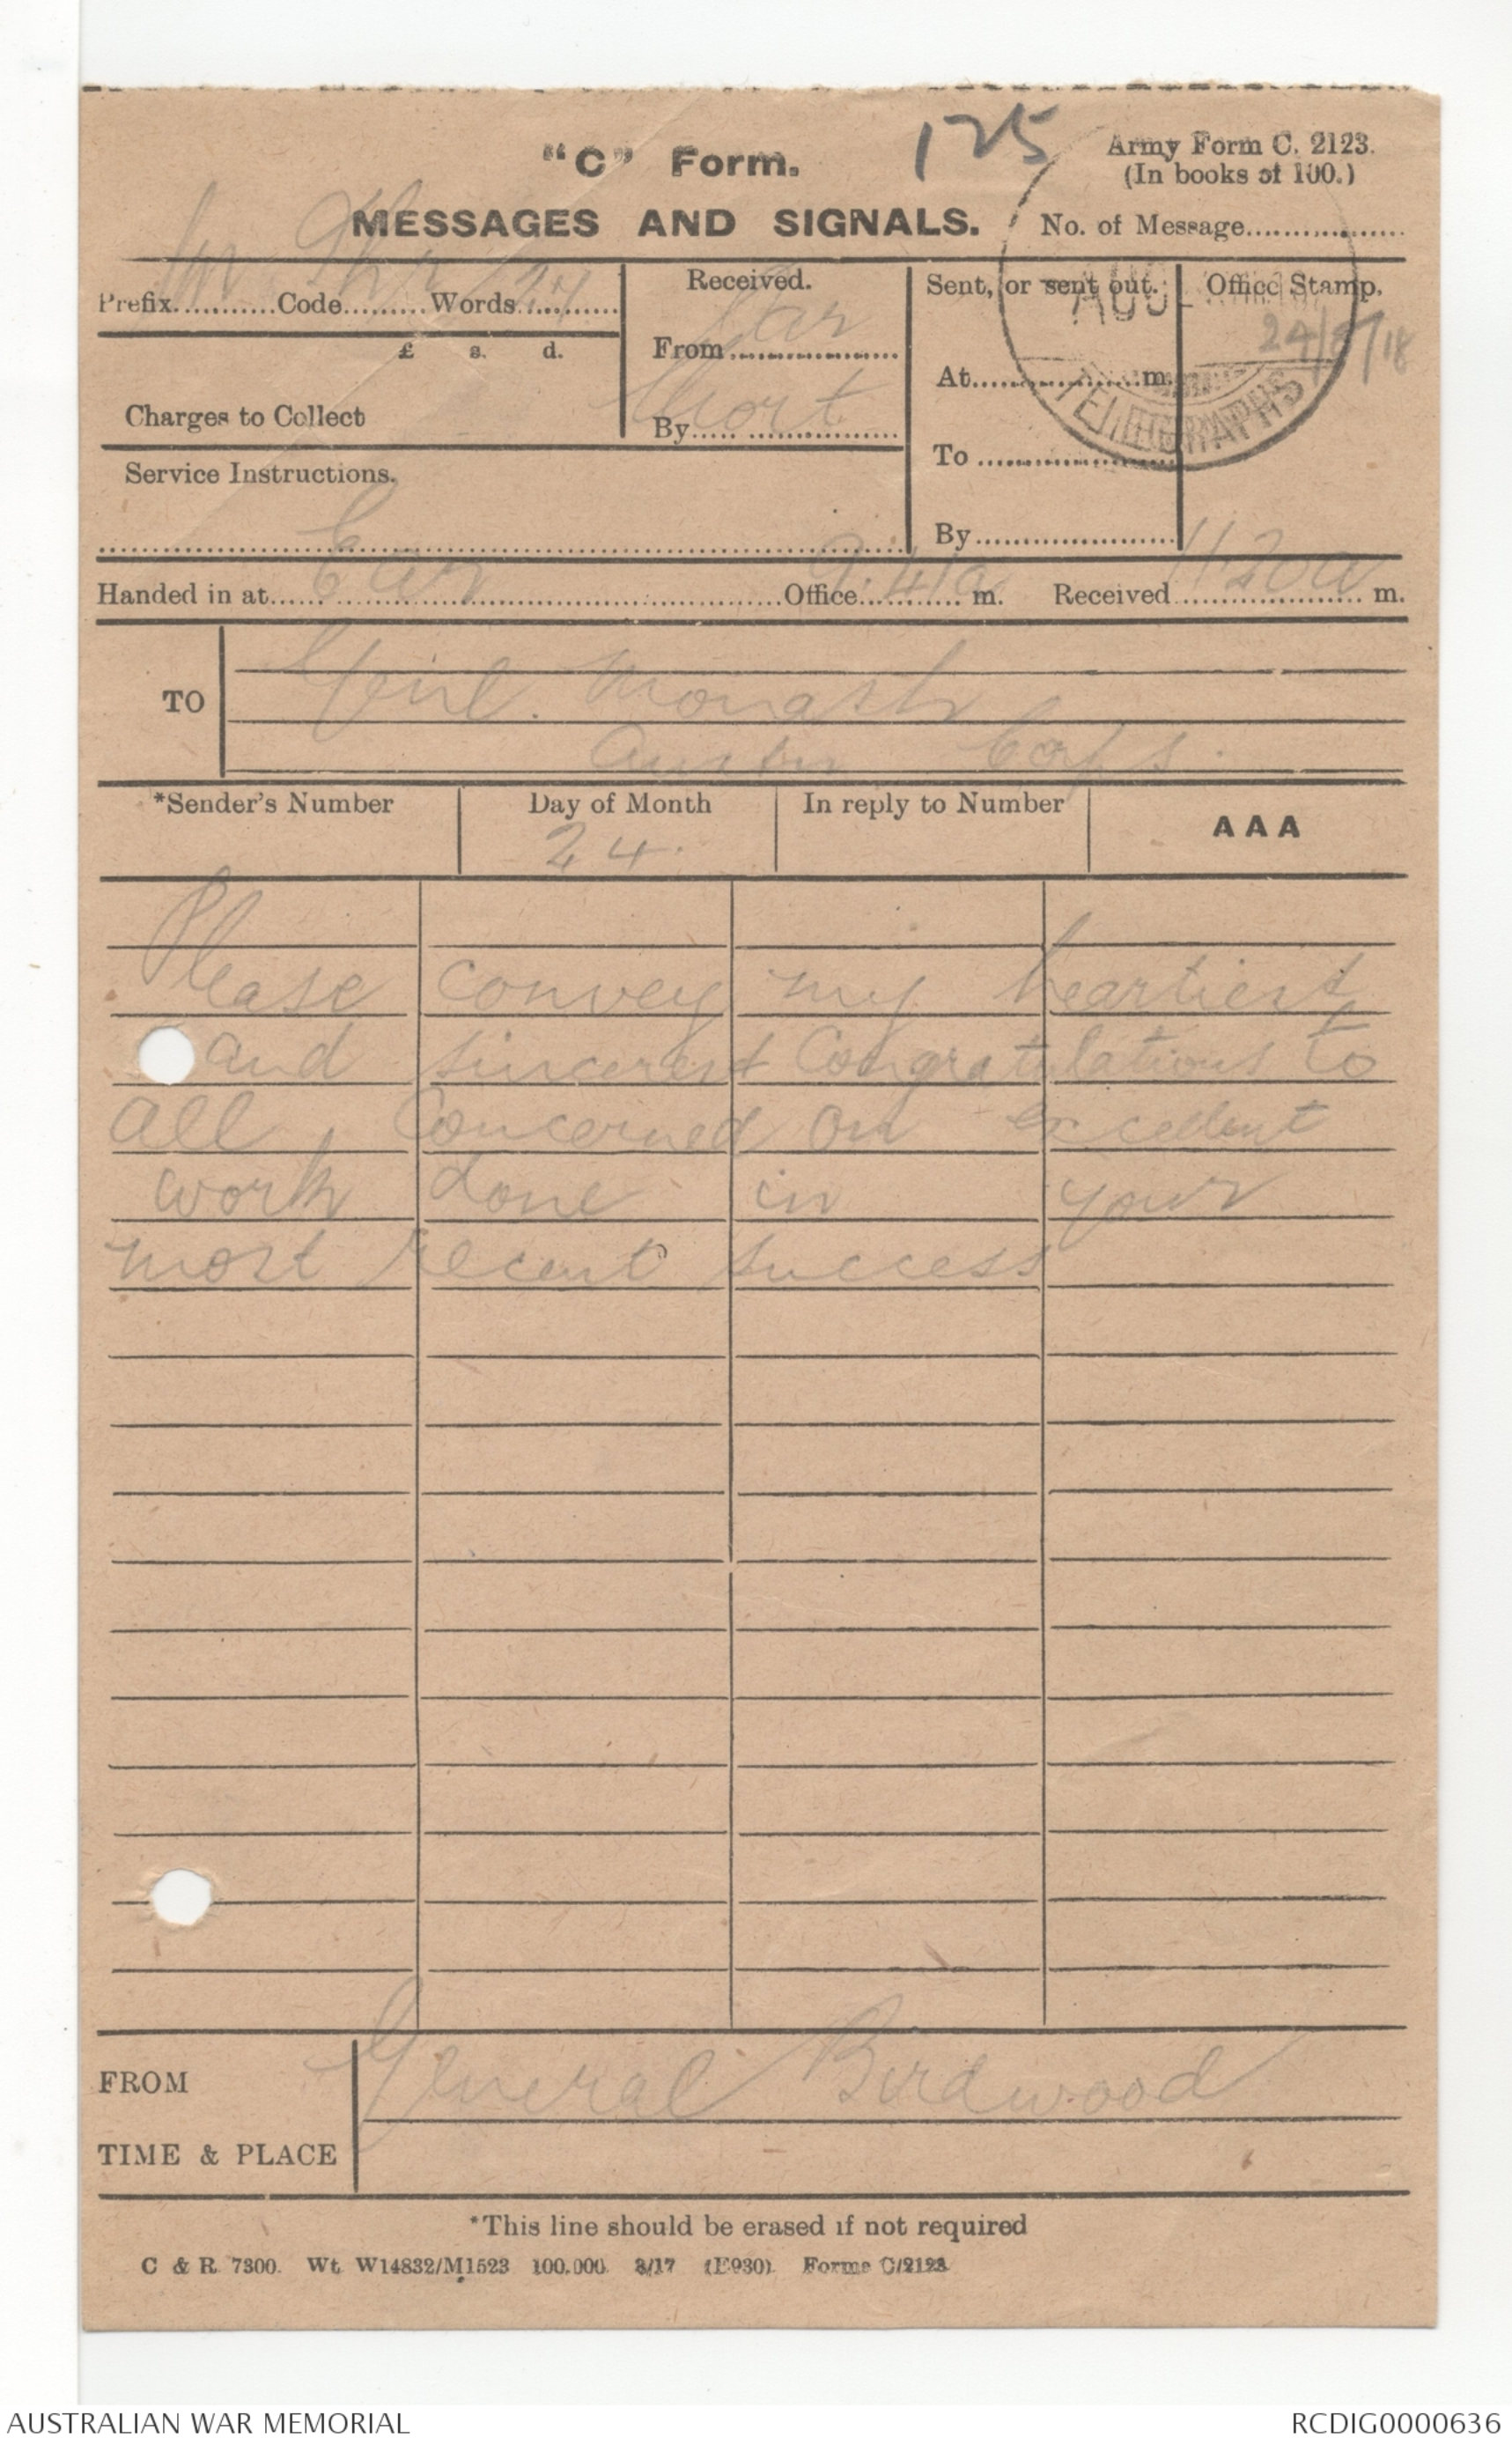 125
"C" Form.
Army Form C. 2123.
(In books of 100.)
MESSAGES AND SIGNALS.
No. of Message..................
Prefix............Code.........Words............
Received.
Sent, or sent out.
Office Stamp.
AUG
24/8/18
£ s. d.
From...................
At......................m.
TELEGRAPHS
Charges to Collect
By..... .................
Short
To .......................
Service Instructions.
By......................
Handed in at..........Office 9.41a m. Received 11.20a m.
TO
Genl. Monash
Austn Corps.
*Sender's Number
Day of Month
In reply to Number
AAA
24.
Please convey my heartiest
and sincerest Congratulations to
all Concerned on excellent
work done in your
most recent success
FROM
General Birdwood
TIME & PLACE
*This line should be erased if not required
C & R. 7300. Wt. W14832/M1523 100,000. 3/17 (E930). Forms C/2123
AUSTRALIAN WAR MEMORIAL
RCDIG0000636